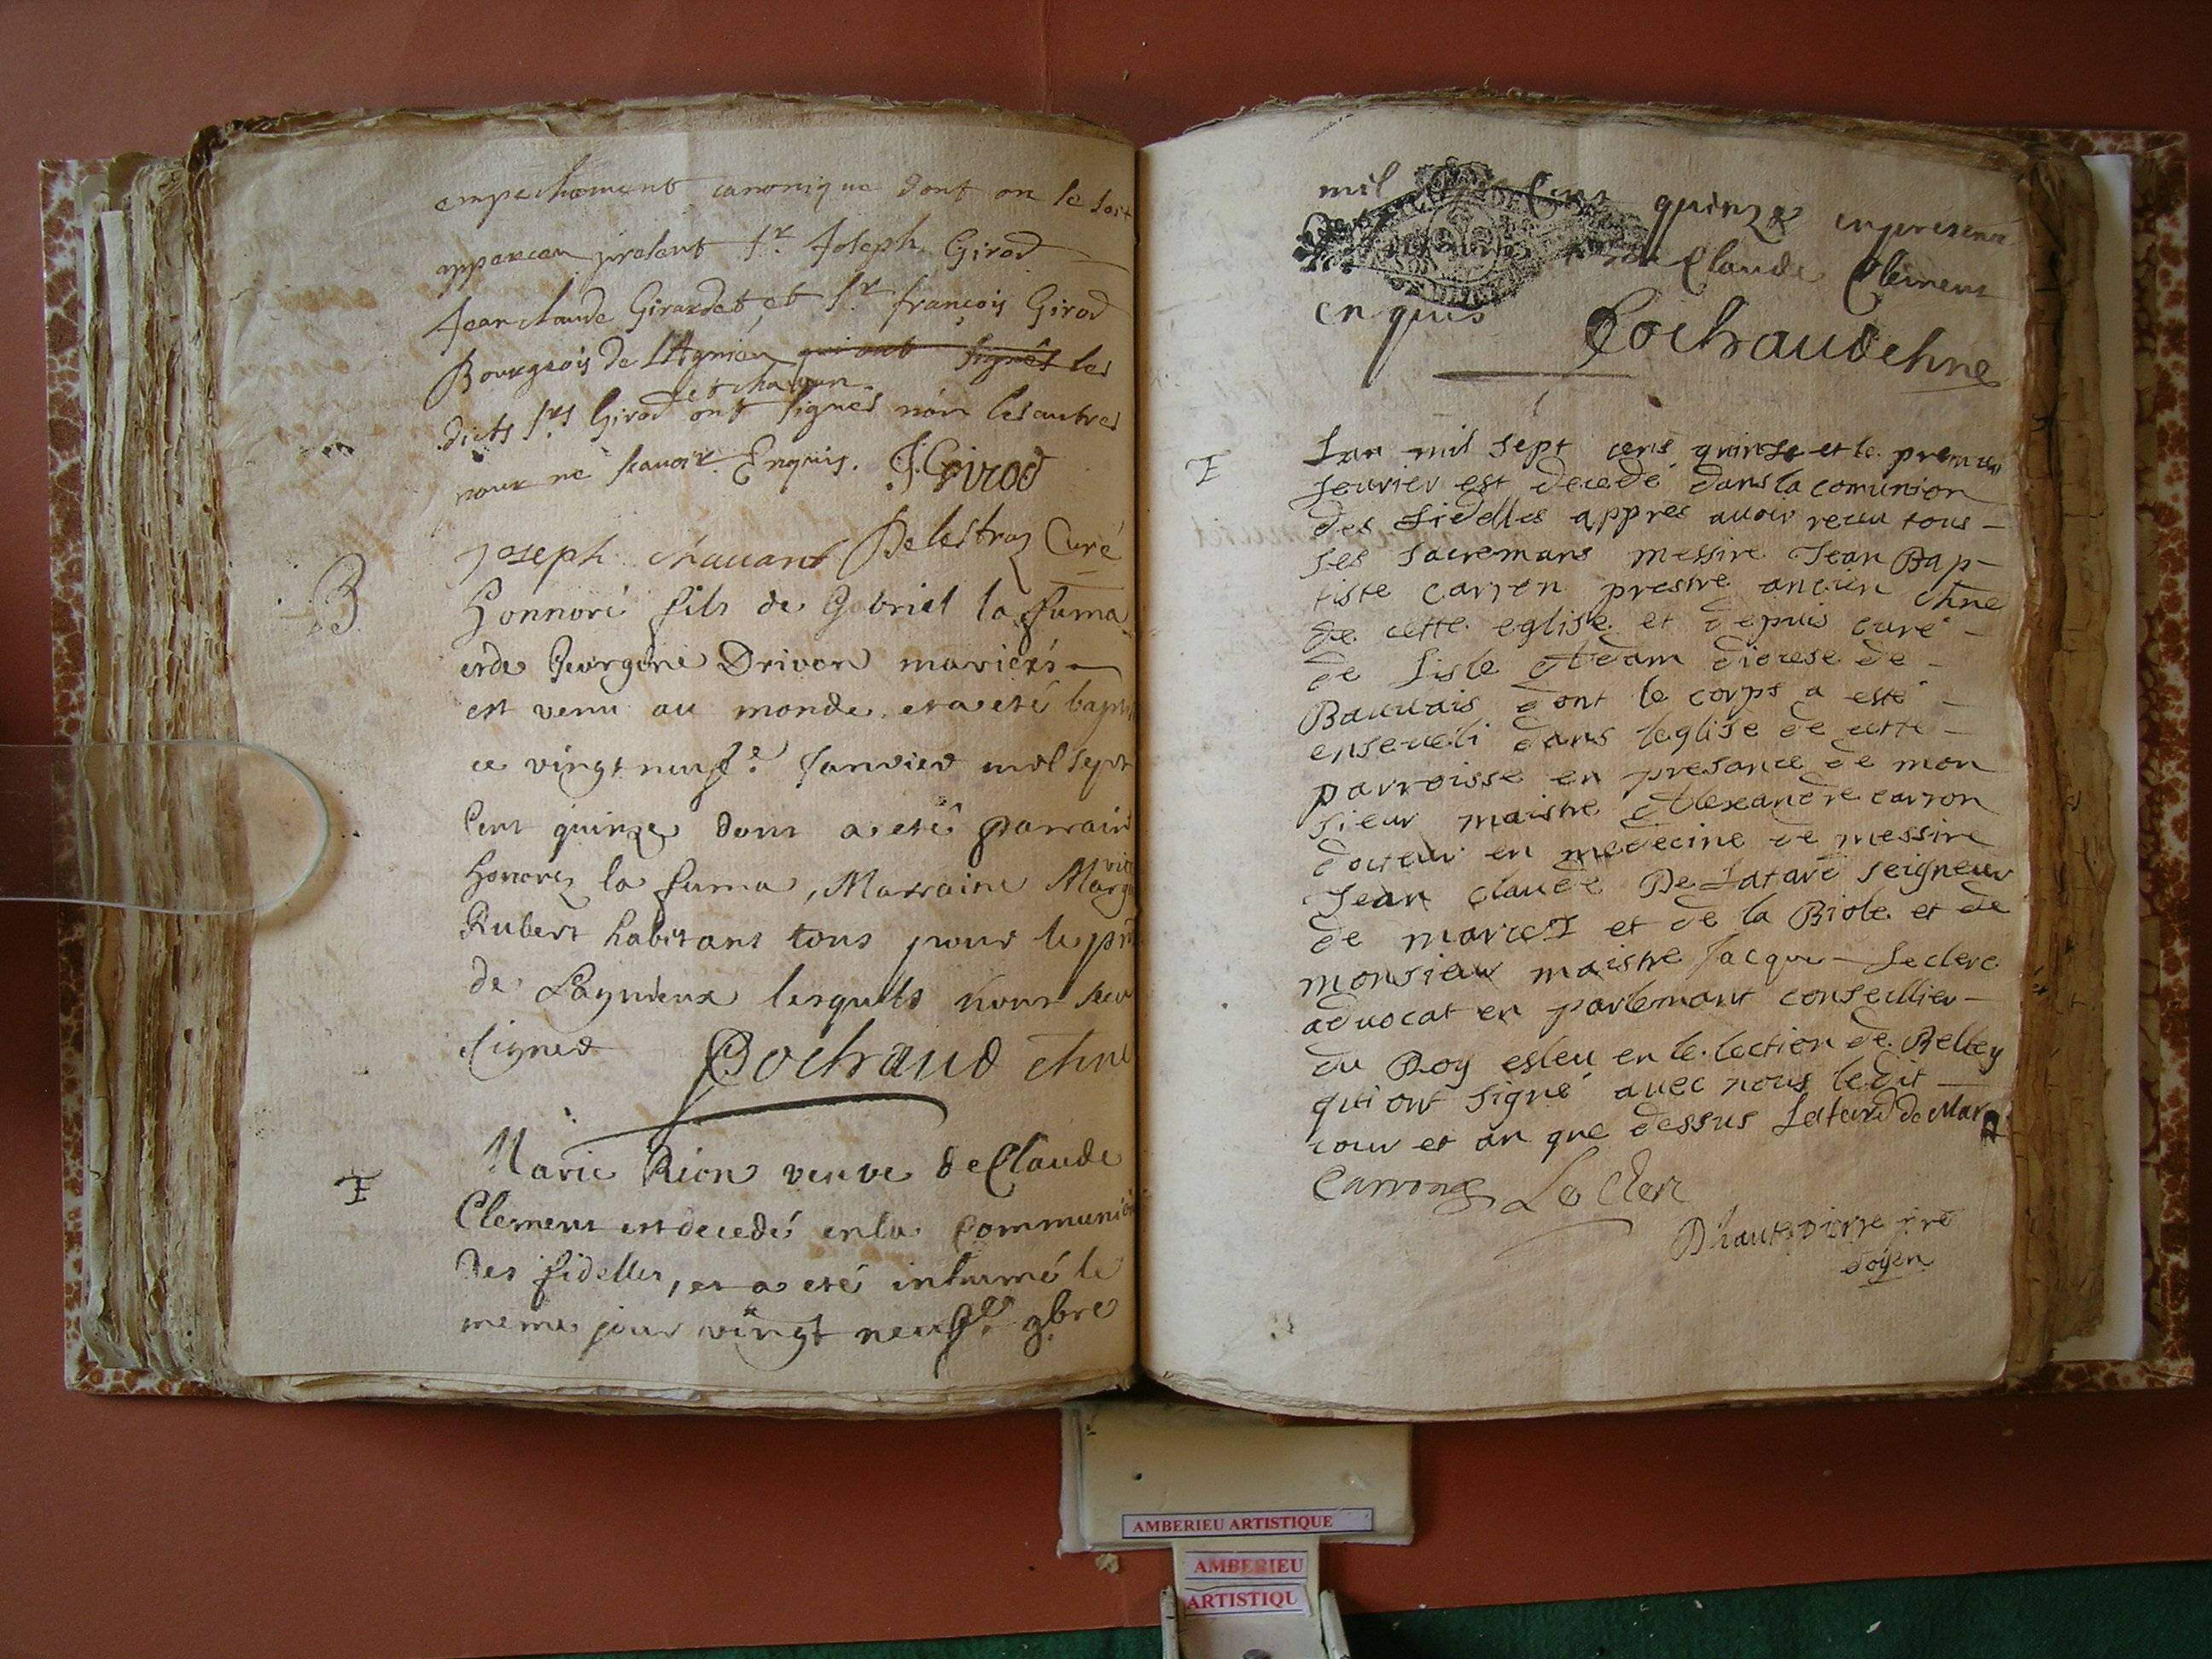 empechement canonique dont on se soit
apparceu present Sr. Joseph Girod
Jean claude Girardet, et Sr françois Girod
Bourgeois de LAgnieu qui ont signés les
et chavan
dicts Srs Girod ont signes non les autres
pour ne scavoir. Enquis. J. Girod
joseph chauant Delestraz Curé
B
Honnoré fils de Gabriel la fuma
et de Georgine Drivon mariés
est venu au monde et a eté baptis
ce vingt neufe. Janvier mil sept
Cent quinze dont a eté parrain
Honorez la fuma, Marraine Margu
Rubert habitans tous pour le pnt
de Lagnieux lesquels n'ont sceu
signer Cochraud chne
F
Marie Rion veuve de Claude
Clement est decedé en la Communion
des fidelles, et a eté inhumé le
meme jour vingt neufe. 9bre
mil Cens quinze en presence
Claude Clement
enquis Cochraud chne
F
Lan mil sept cens quinse et le premier
feuvrier est decedé dans la comunion
des fidelles appres auoir receu tous
ses sacremans messire Jean Bap-
tiste carron prestre ancien chne
de cette eglise et depuis curé
de Lisle Adam diocese de
Bauuais dont le corps a esté
enseueli dans leglise de cette
parroisse en presance de mon
sieur maistre Alexandre carron
docteur en medecine de messire
Jean claude De Latard seigneur
de marcz et de la Biole et de
monsieur maistre Jacque Leclerc
aduocat en parlemant conseillier
du Roy esleu en le lection de Belley
qui ont signé auec nous ledit
iour et an que dessus Latard de Marcz
Carron Le Clerc
D'hautepierre pre
doyen
AMBERIEU ARTISTIQUE
AMBERIEU
ARTISTIQU